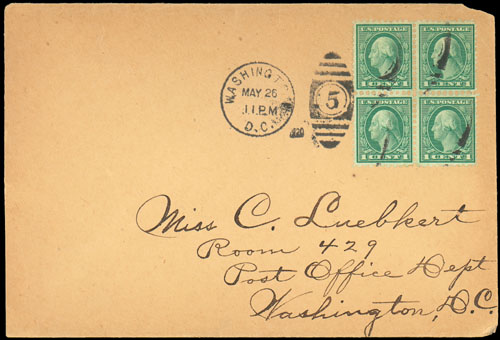 WASHINGT
MAY 26
11 P.M
D.C.
1920
5
U.S. POSTAGE
1 CENT 1
U.S. POSTAGE
1 CENT 1
U.S. POSTAGE
1 CENT 1
U.S. POSTAGE
1 CENT 1
Miss C. Luebkert
Room 429
Post Office Dept
Washington, D.C.